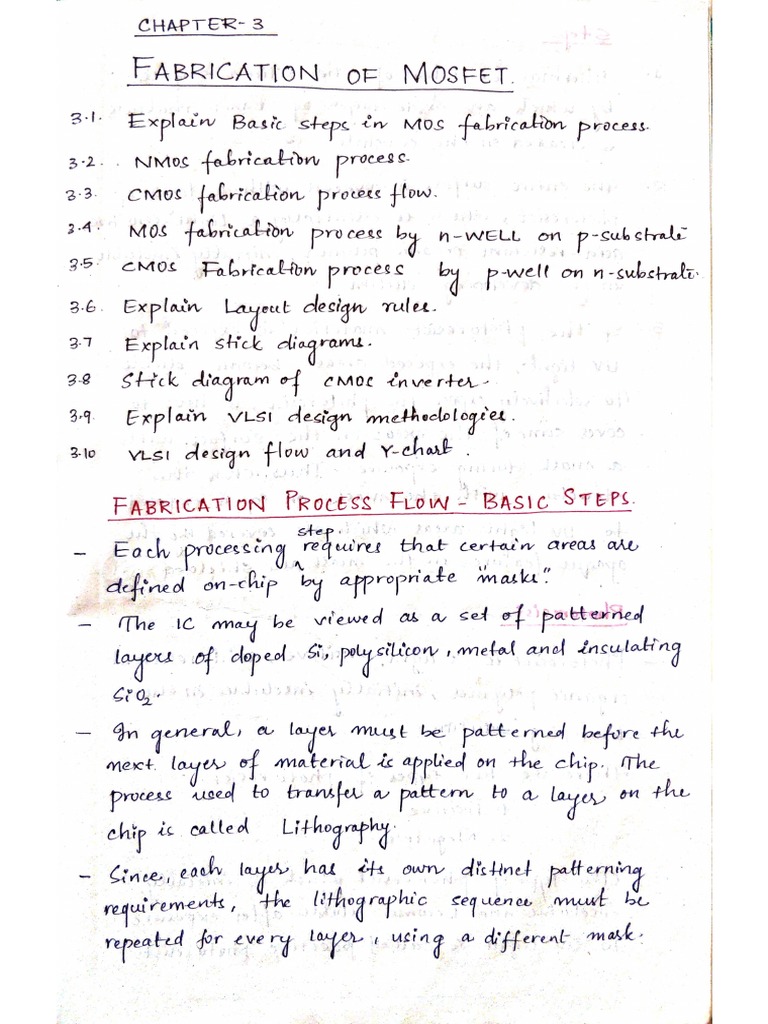 CHAPTER-3
FABRICATION OF MOSFET.
3.1. Explain Basic steps in MOS fabrication process.
3.2. NMOS fabrication process.
3.3. CMOS fabrication process flow.
3.4. MOS fabrication process by n-WELL on p-substrate
3.5. CMOS Fabrication process by p-well on n-substrate.
3.6. Explain Layout design rules.
3.7 Explain stick diagrams.
3.8 Stick diagram of CMOS inverter.
3.9. Explain VLSI design methodologies.
3.10 VLSI design flow and Y-chart.
FABRICATION PROCESS FLOW - BASIC STEPS.
step.
- Each processing requires that certain areas are
defined on-chip by appropriate "masks".
- The IC may be viewed as a set of patterned
layers of doped Si, polysilicon, metal and insulating
SiO2.
- In general, a layer must be patterned before the
next layer of material is applied on the chip. The
process used to transfer a pattern to a layer on the
chip is called Lithography.
- Since, each layer has its own distinct patterning
requirements, the lithographic sequence must be
repeated for every layer, using a different mask.